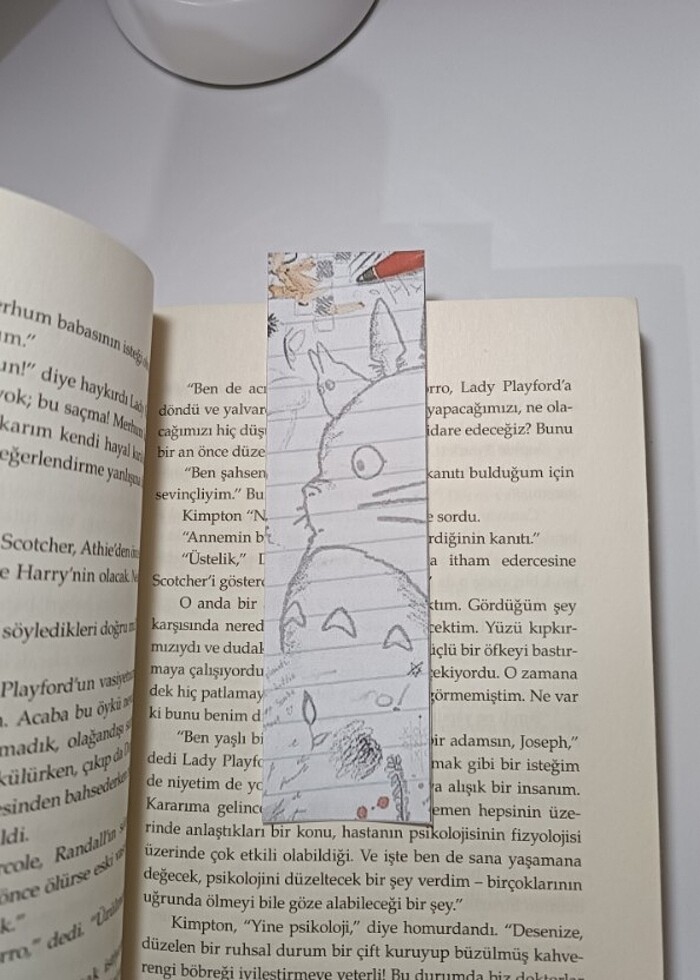 rhum babasının isteği
m.”
un!” diye haykırdı Lady
yok; bu saçma! Merhum
karım kendi hayal
eğerlendirme yanlışına
Scotcher, Athie’den
e Harry’nin olacak.
söyledikleri doğru
Playford’un vasiyet
. Acaba bu öykü
madık, olağandışı
külürken, çıkıp da
esinden bahsederken
ldi.
rcole, Randall’ın
önce ölürse eski
k.”
rro,” dedi.
“Ben de acı orro, Lady Playford’a
döndü ve yalvar yapacağımızı, ne ola-
cağımızı hiç düş idare edeceğiz? Bunu
bir an önce düze
“Ben şahsen kanıtı bulduğum için
sevinçliyim.” Bu
Kimpton “N e sordu.
“Annemin b rdiğinin kanıtı.”
“Üstelik,” a itham edercesine
Scotcher’i göster
O anda bir ktım. Gördüğüm şey
karşısında nered çektim. Yüzü kıpkır-
mızıydı ve dudak üçlü bir öfkeyi bastır-
maya çalışıyordu çekiyordu. O zamana
dek hiç patlamay görmemiştim. Ne var
ki bunu benim d
“Ben yaşlı bi bir adamsın, Joseph,”
dedi Lady Playfo mak gibi bir isteğim
de niyetim de yo a alışık bir insanım.
Kararıma gelince emen hepsinin üze-
rinde anlaştıkları bir konu, hastanın psikolojisinin fizyolojisi
üzerinde çok etkili olabildiği. Ve işte ben de sana yaşamana
değecek, psikolojini düzeltecek bir şey verdim – birçoklarının
uğrunda ölmeyi bile göze alabileceği bir şey.”
Kimpton, “Yine psikoloji,” diye homurdandı. “Desenize,
düzelen bir ruhsal durum bir çift kuruyup büzülmüş kahve-
rengi böbreği iyileştirmeye yeterli! Bu durumda biz doktorlar